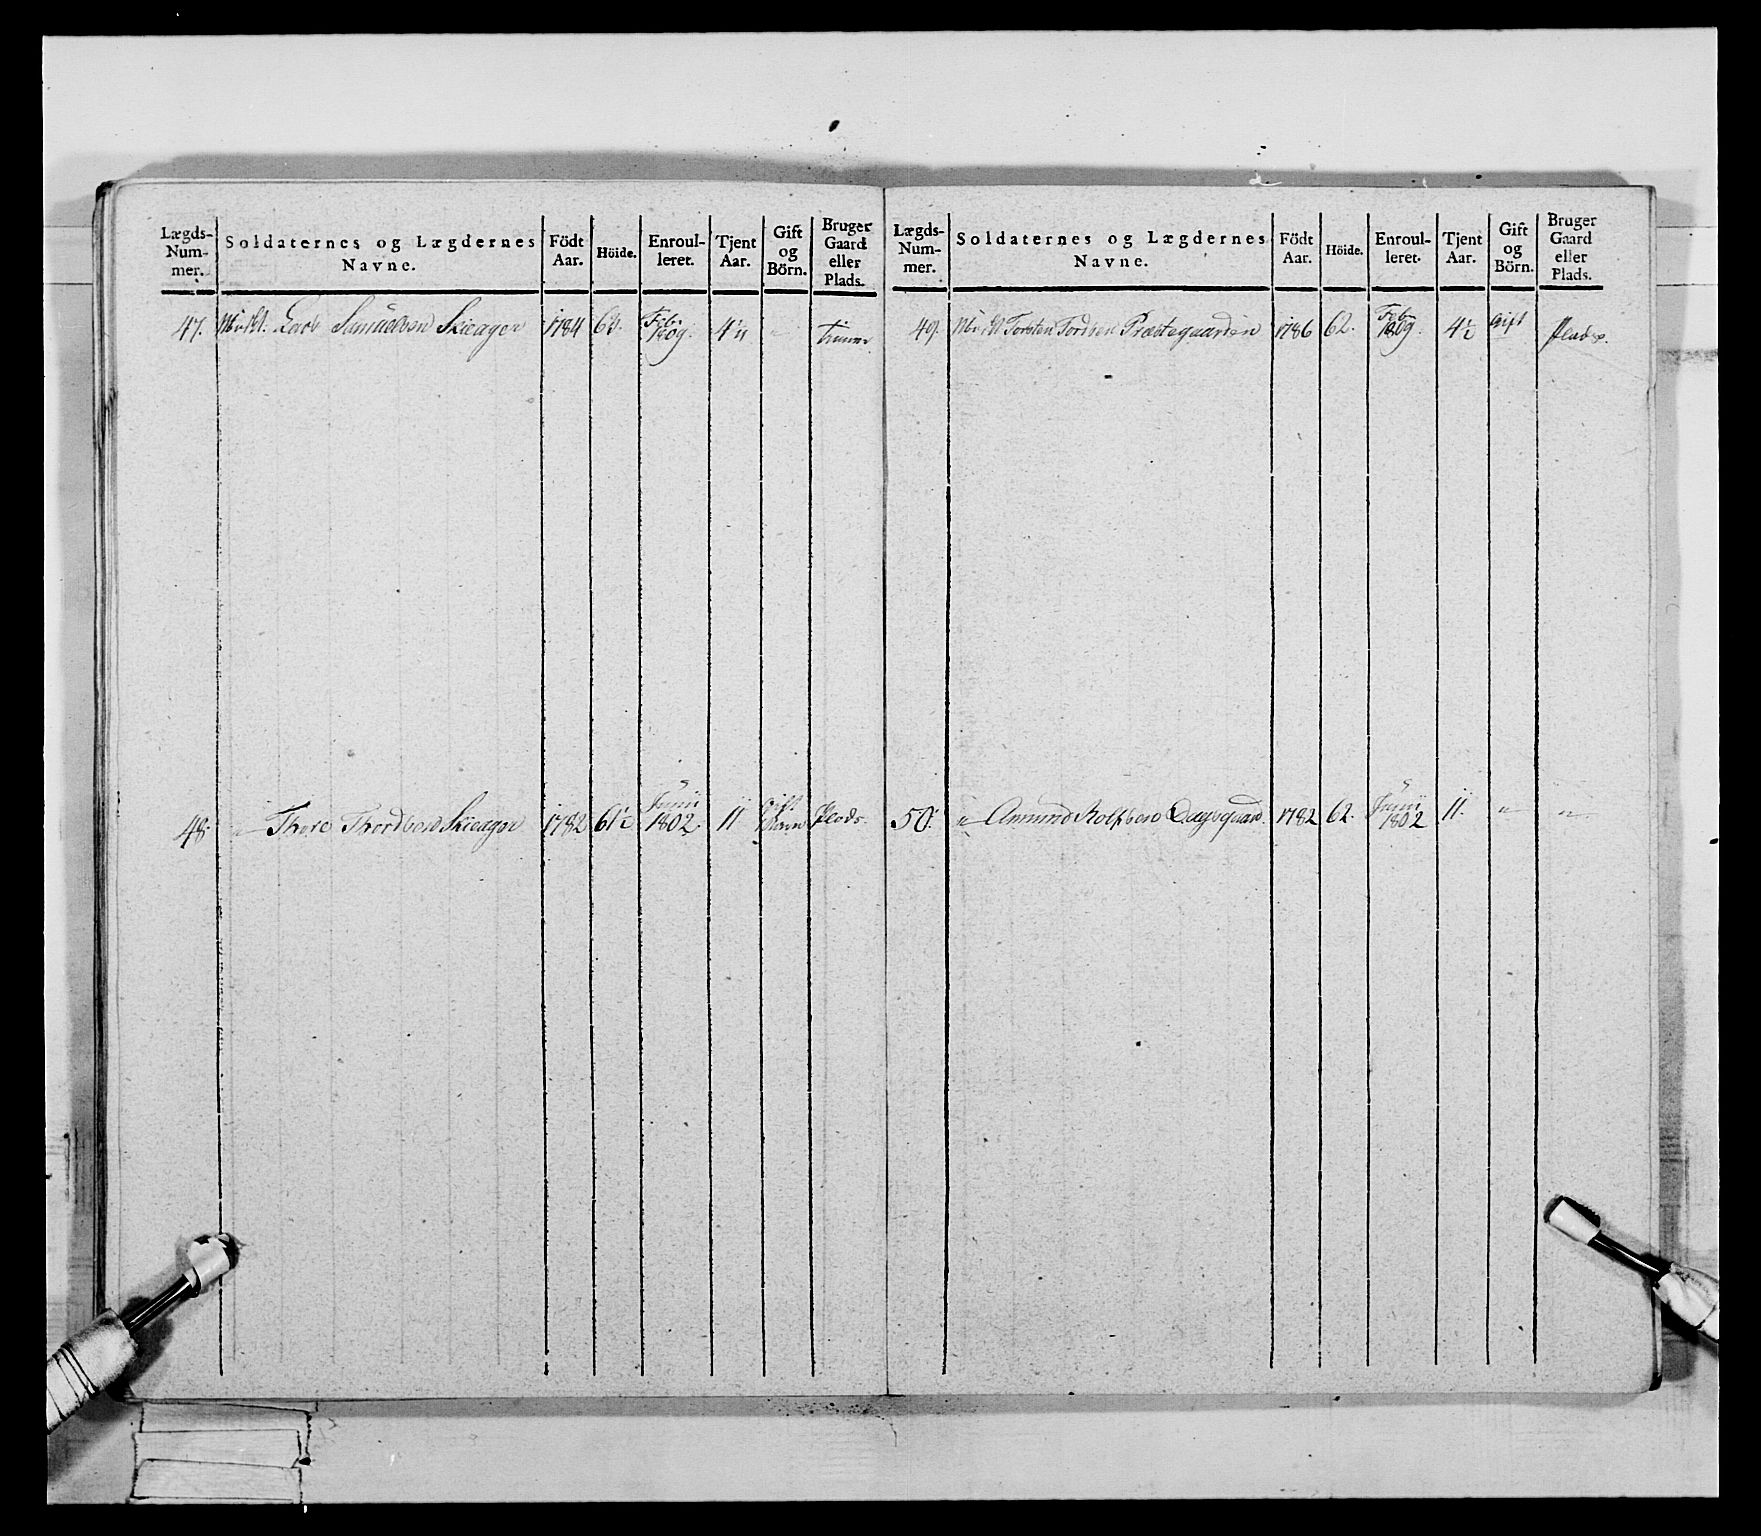 Lægds-Num-mer. Soldaternes og Lægdernes Navne. Födt Aar. Höide. Enroul-leret. Tjent Aar. Gift og Börn. Bruger Gaard eller Plads.
47. Samuelsen Skieager 1784 63. Feb. 1809. 4½ "
48. " Thore Thordsen Skieager 1782 61½ Junii 1802 11 Gift Plads.
Lægds-Num-mer. Soldaternes og Lægdernes Navne. Födt Aar. Höide. Enroul-leret. Tjent Aar. Gift og Börn. Bruger Gaard eller Plads.
49. Torsten Tordsen Præstegaarden 1786 62. Feb. 1809. 4½ Gift Plads.
50. " Amund 1782 62. Junii 1802 11. " "